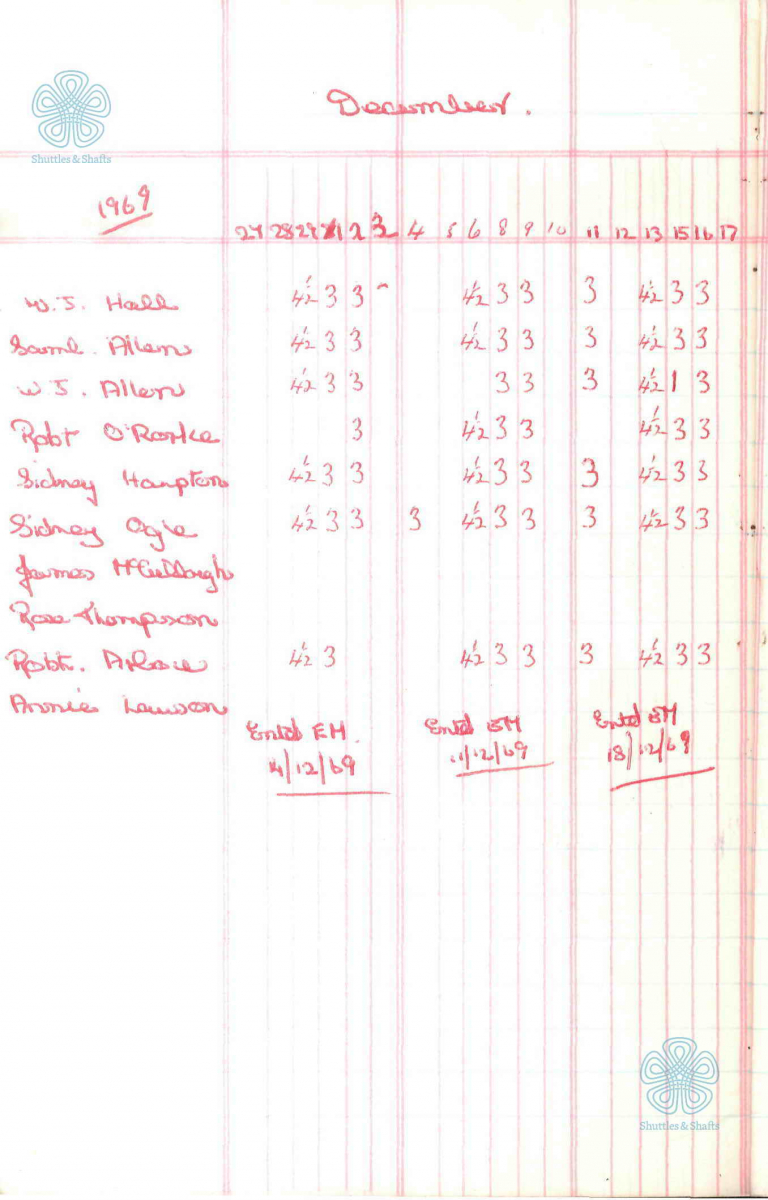 Shuttles & Shafts
December.
1969
27 28 29 1 2 3 4 5 6 8 9 10 11 12 13 15 16 17
W.J. Hall 4½ 3 3 - 4½ 3 3 3 4½ 3 3
Saml. Allen 4½ 3 3 4½ 3 3 3 4½ 3 3
W J. Allen 4½ 3 3 3 3 3 4½ 1 3
Robt O'Rorke 3 4½ 3 3 4½ 3 3
Sidney Hampton 4½ 3 3 4½ 3 3 3 4½ 3 3
Sidney Ogle 4½ 3 3 3 4½ 3 3 3 4½ 3 3
James McCullough
Rose Thompson
Robt. 4½ 3 4½ 3 3 3 4½ 3 3
Annie Lawson
Entd EH. Entd EH Entd EH
4/12/69 11/12/69 18/12/69
Shuttles & Shafts